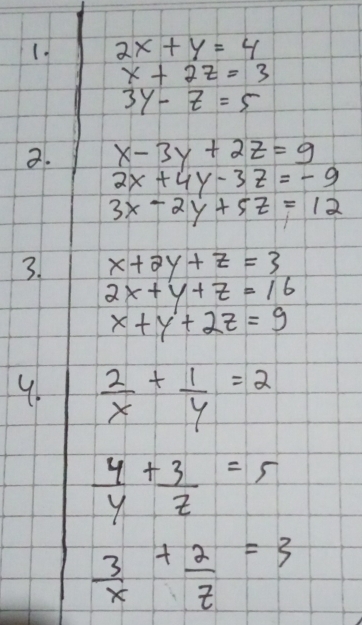 1. 2x + y = 4
x + 2z = 3
3y - z = 5
2. x - 3y + 2z = 9
2x + 4y - 3z = -9
3x - 2y + 5z = 12
3. x + 2y + z = 3
2x + y + z = 16
x + y + 2z = 9
4. 2/x + 1/y = 2
4/y + 3/z = 5
3/x + 2/z = 3